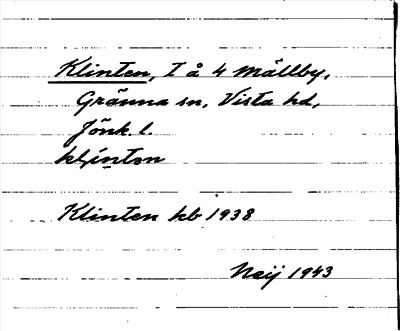 Klinten, T å 4 Målby,
Gränna sn, Vista hd,
Jönk. l.
Klinten kb 1938
Neij 1943